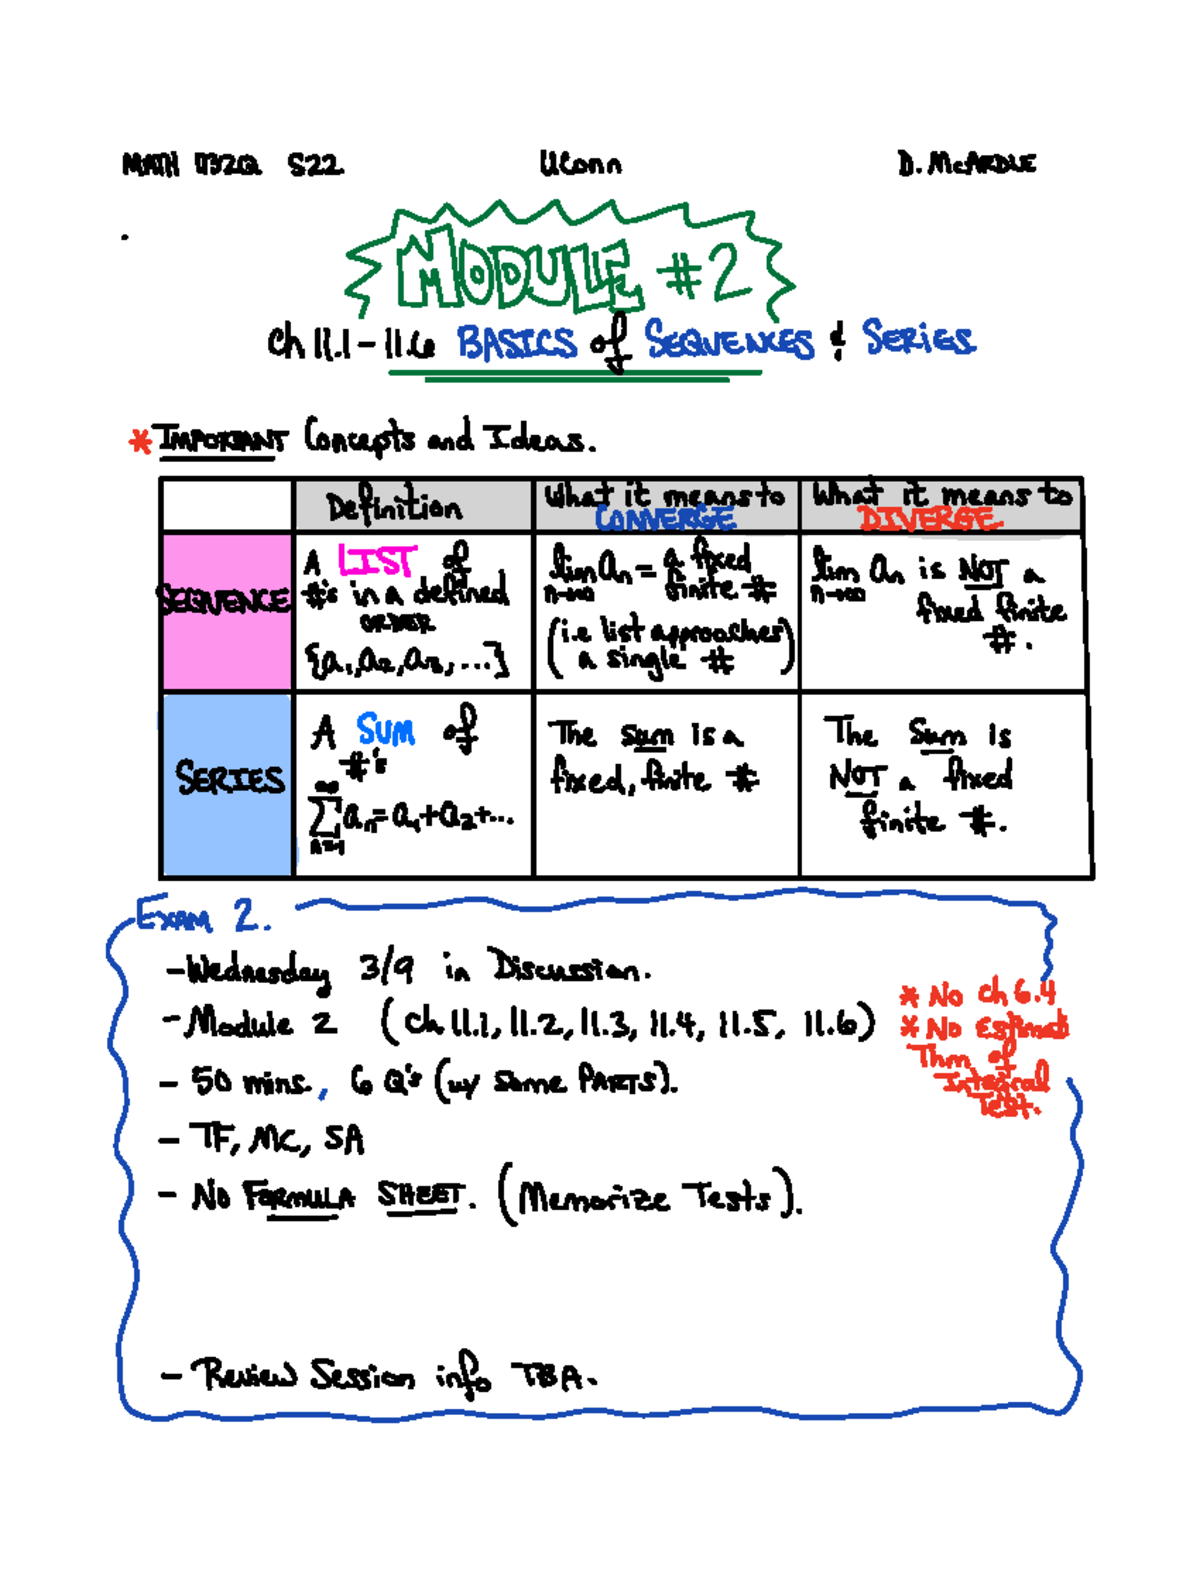 MATH 1132Q S22 UConn D. McARDLE
MODULE #2
Ch 11.1 - 11.6 BASICS of SEQUENCES & SERIES
* IMPORTANT Concepts and Ideas.
Definition
What it means to CONVERGE
What it means to DIVERGE
SEQUENCE
A LIST of
#'s in a defined
ORDER
{a₁, a₂, a₃, ...}
lim aₙ = a fixed
n→∞ finite #
(i.e list approaches
a single #)
lim aₙ is NOT a
n→∞ fixed finite
#.
SERIES
A SUM of
#'s
∞
∑ aₙ = a₁ + a₂ + ...
n=1
The sum is a
fixed, finite #
The Sum is
NOT a fixed
finite #.
EXAM 2.
- Wednesday 3/9 in Discussion.
- Module 2 (ch 11.1, 11.2, 11.3, 11.4, 11.5, 11.6)
* No ch 6.4
* No Estimat
Thm of
Integral
Test.
- 50 mins, 6 Q's (w/ some PARTS).
- TF, MC, SA
- NO FORMULA SHEET. (Memorize Tests).
- Review Session info TBA.